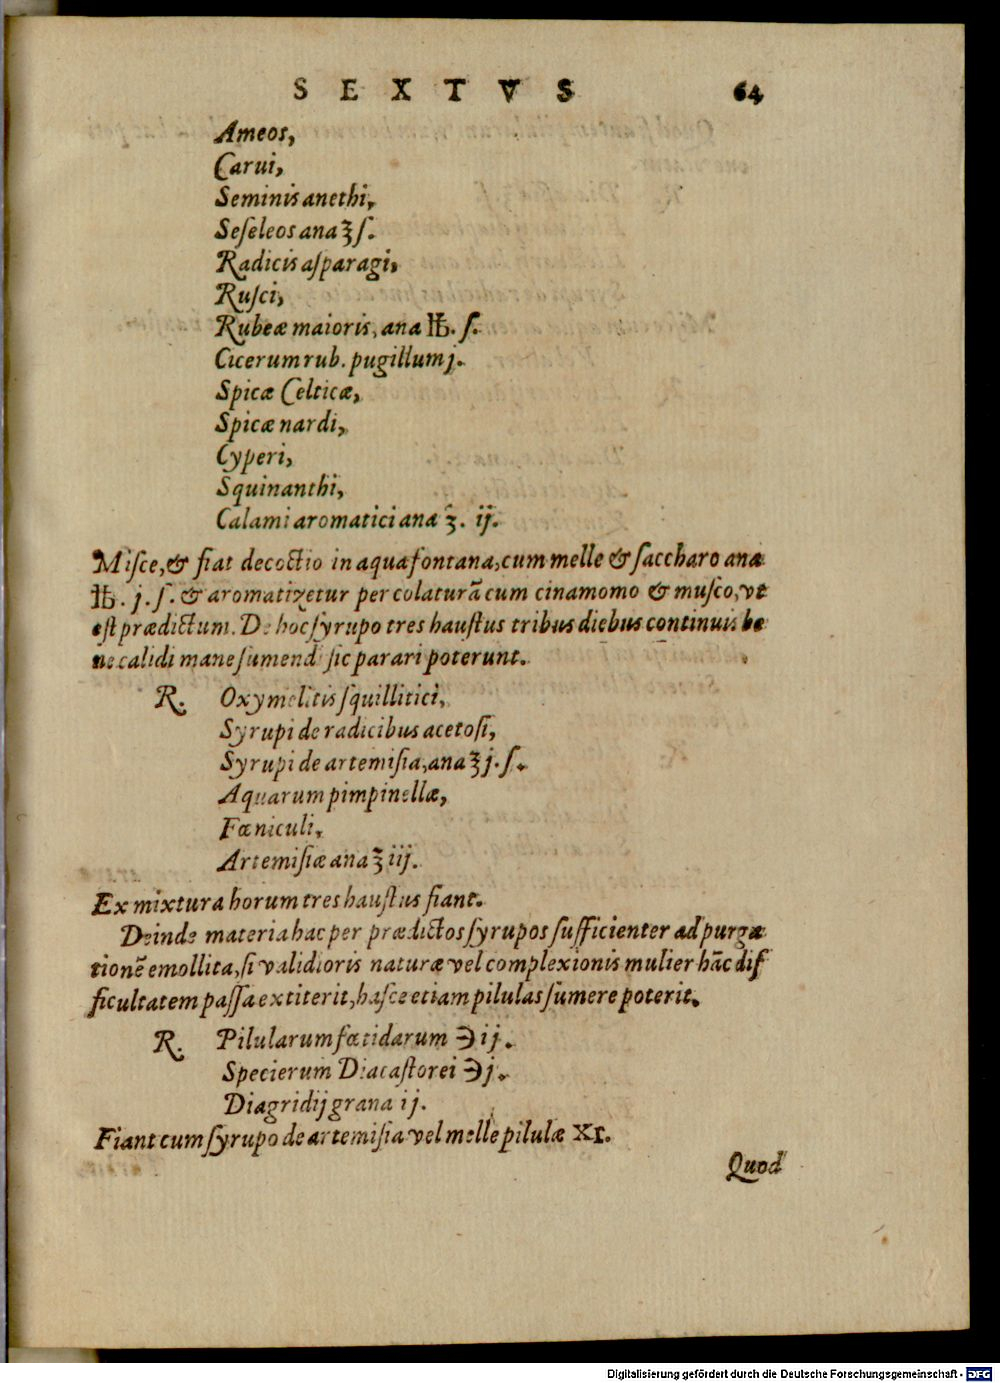 SEXTVS 64
Ameos,
Carui,
Seminis anethi,
Seſeleos ana ʒ ſ.
Radicis aſparagi,
Ruſci,
Rubeæ maioris, ana ℔. ſ.
Cicerum rub. pugillum j.
Spicæ Celticæ,
Spicæ nardi,
Cyperi,
Squinanthi,
Calami aromatici ana ʒ. ij.
Miſce, & fiat decoctio in aqua fontana, cum melle & ſaccharo ana
℔. j. ſ. & aromatizetur per colaturã cum cinamomo & muſco, vt
eſt prædictum. De hoc ſyrupo tres hauſtus tribus diebus continuis be
ne calidi mane ſumendi ſic parari poterunt.
R. Oxymelitis ſquillitici,
Syrupi de radicibus acetoſi,
Syrupi de artemiſia, ana ʒ j. ſ.
Aquarum pimpinellæ,
Fœniculi,
Artemiſiæ ana ʒ iij.
Ex mixtura horum tres hauſtus fiant.
Deinde materia hac per prædictos ſyrupos ſufficienter ad purga
tionẽ emollita, ſi validioris naturæ vel complexionis mulier hãc dif
ficultatem paſſa extiterit, haſce etiam pilulas ſumere poterit.
R. Pilularum fœtidarum ℈ ij.
Specierum Diacaſtorei ℈ j.
Diagridij grana ij.
Fiant cum ſyrupo de artemiſia vel melle pilulæ XI.
Quod
Digitalisierung gefördert durch die Deutsche Forschungsgemeinschaft - DFG